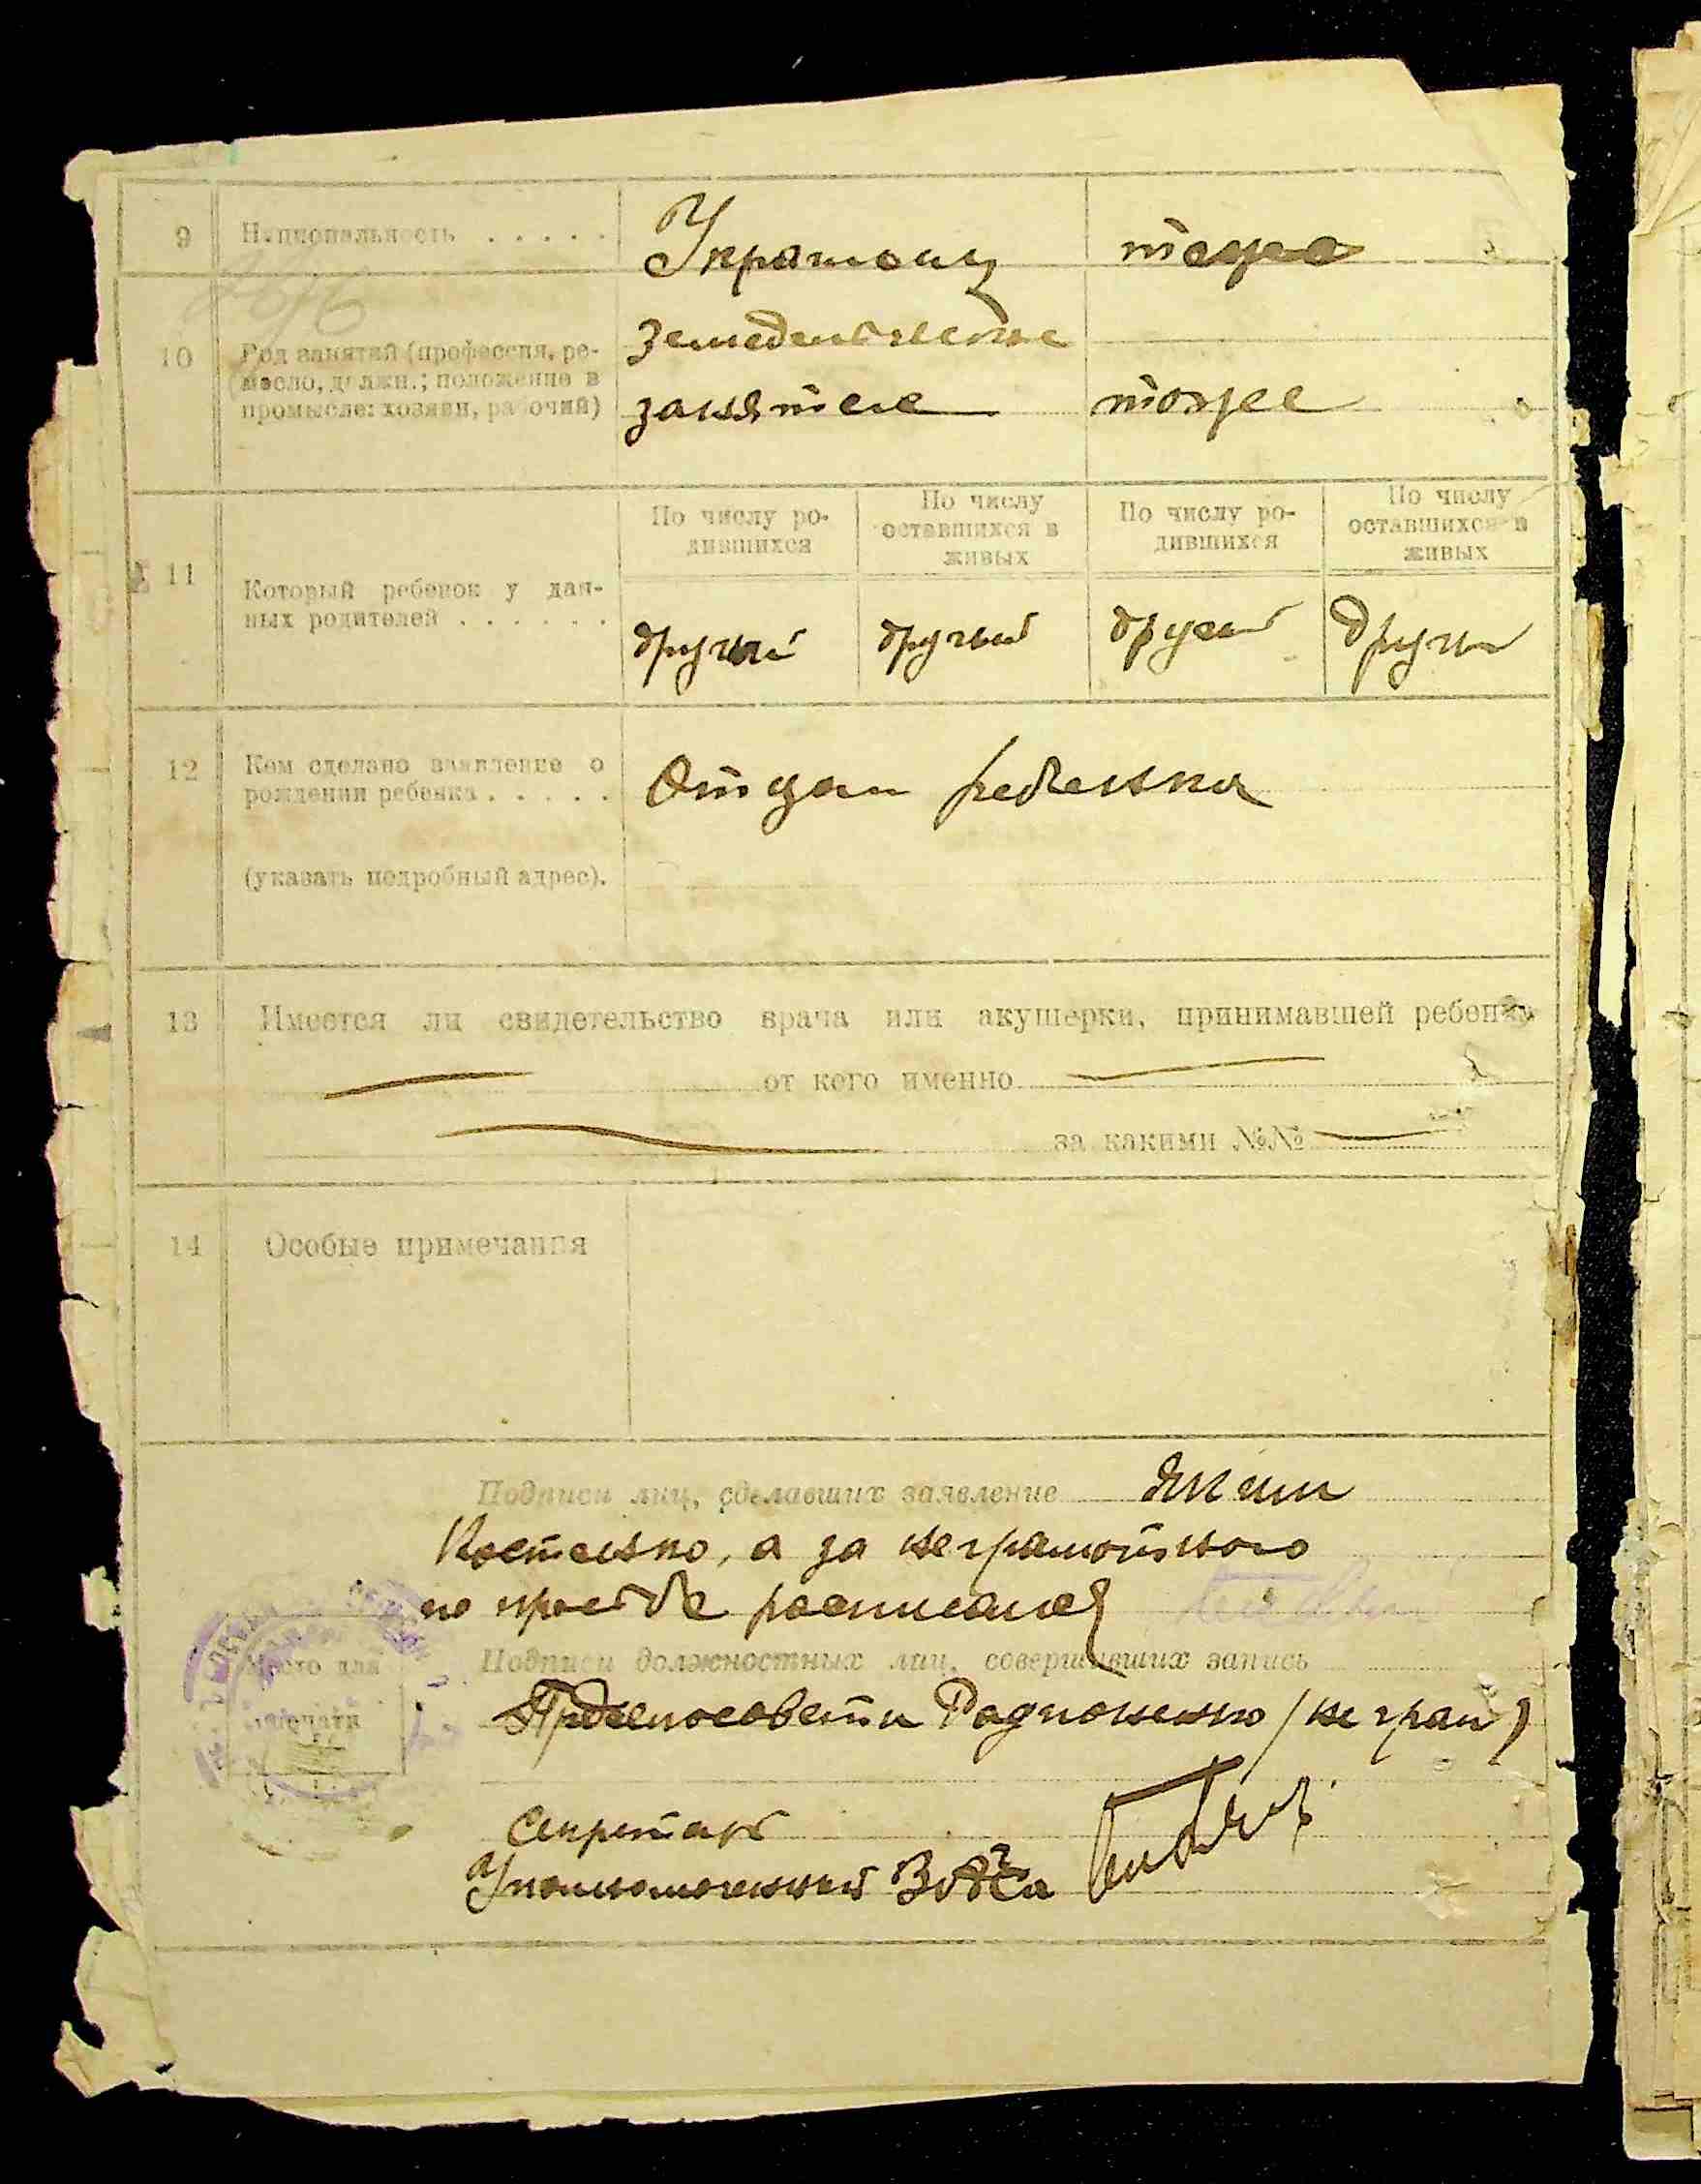 9 Национальность . . . . . Украинец тоже
10 Род занятий (профессия, ре- Земледельческие
месло, должн.; положение в
промысле: хозяин, рабочий) занятие тоже
По числу ро- По числу По числу ро- По числу
дившихся оставшихся в дившихся оставшихся в
живых живых
11 Который ребенок у дан-
ных родителей . . . . . . другий другий другий другий
12 Кем сделано заявление о
рождении ребенка . . . . . Отцом ребенка
(указать подробный адрес).
13 Имеется ли свидетельство врача или акушерки, принимавшей ребенка
от кого именно
за какими №№
14 Особые примечания
Подписи лиц, сделавших заявление Яким
Костенко, а за неграмотного
по просьбе расписался
Подписи должностных лиц, совершивших запись
Место для
печати
Предсельсовета Радионенко (неграм)
Секретарь
Уполномоченный ЗАГСа